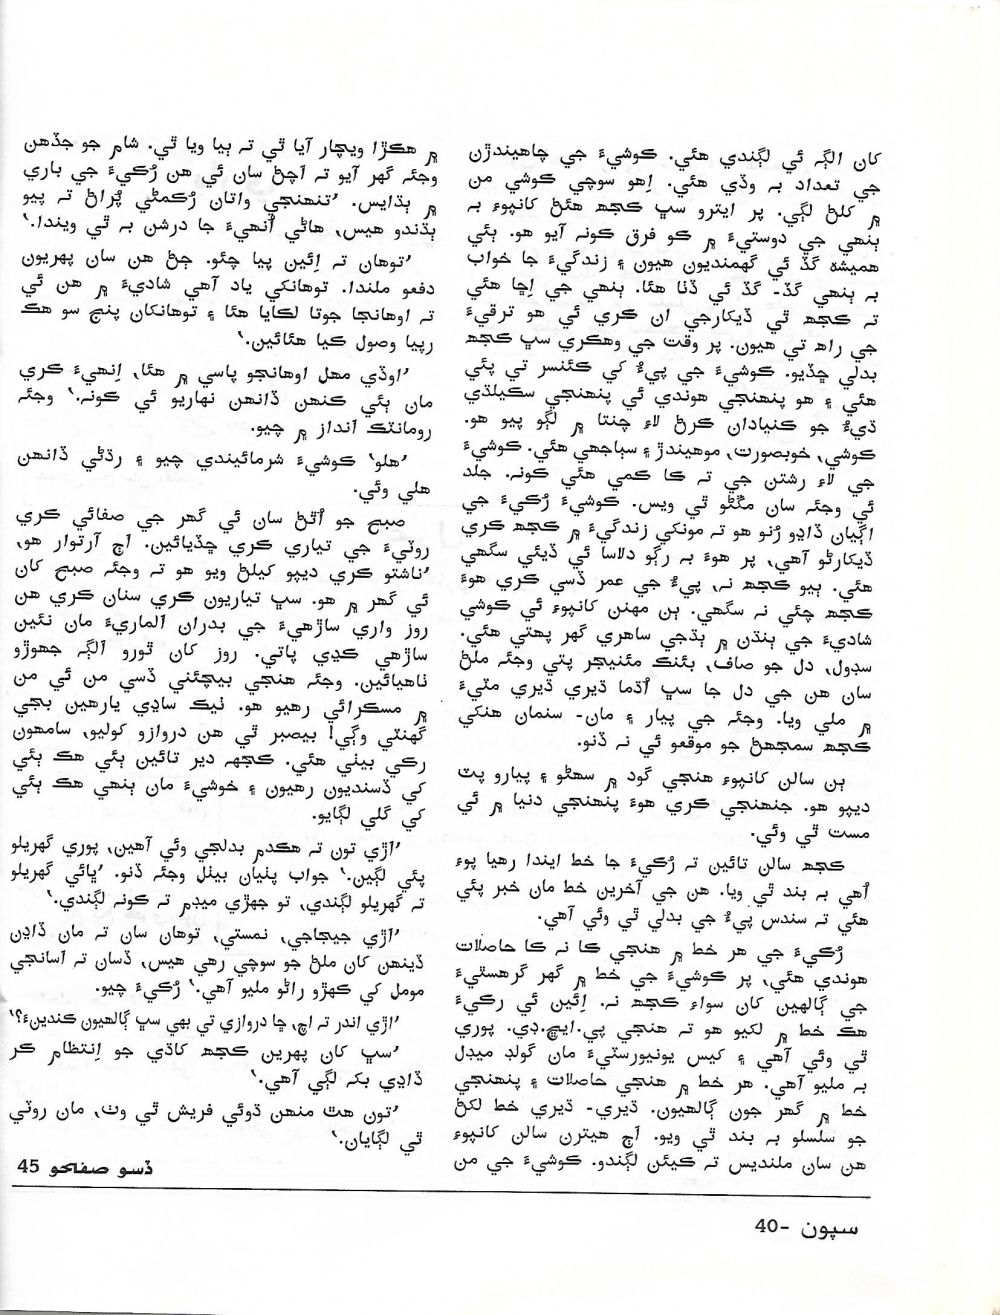 کان الڳ ئي لڳندي هئي. ڪوشيءَ جي چاهيندڙن
جي تعداد بہ وڏي هئي. اِهو سوچي ڪوشي من
۾ کلڻ لڳي. پر ايترو سڀ ڪجهہ هئڻ کانپوءِ بہ
ٻنهي جي دوستيءَ ۾ ڪو فرق ڪونہ آيو هو. ٻئي
هميشہ گڏ ئي گهمنديون هيون ۽ زندگيءَ جا خواب
بہ ٻنهي گڏ- گڏ ئي ڏٺا هئا. ٻنهي جي اِڇا هئي
تہ ڪجهہ ٿي ڏيکارجي ان ڪري ئي هو ترقيءَ
جي راهہ تي هيون. پر وقت جي وهڪري سڀ ڪجهہ
بدلي ڇڏيو. ڪوشيءَ جي پيءُ کي ڪئنسر ٿي پئي
هئي ۽ هو پنهنجي هوندي ئي پنهنجي سڪيلڌي
ڌيءُ جو ڪنيادان ڪرڻ لاءِ چنتا ۾ لڳو پيو هو.
ڪوشي، خوبصورت، موهيندڙ ۽ سٻاجهي هئي. ڪوشيءَ
جي لاءِ رشتن جي تہ ڪا ڪمي هئي ڪونہ. جلد
ئي وجئہ سان مڱڻو ٿي ويس. ڪوشيءَ رُڪيءَ جي
اڳيان ڏاڍو رُنو هو تہ مونکي زندگيءَ ۾ ڪجهہ ڪري
ڏيکارڻو آهي، پر هوءَ بہ رڳو دلاسا ئي ڏيئي سگهي
هئي. ٻيو ڪجهہ نہ، پيءُ جي عمر ڏسي ڪري هوءَ
ڪجهہ چئي نہ سگهي. ٻن مهنن کانپوءِ ئي ڪوشي
شاديءَ جي ٻنڌن ۾ ٻڌجي ساهري گهر پهتي هئي.
سڊول، دل جو صاف، بئنڪ مئنيجر پتي وجئہ ملڻ
سان هن جي دل جا سڀ اُڌما ڌيري ڌيري مٽيءَ
۾ ملي ويا. وجئہ جي پيار ۽ مان- سنمان هنکي
ڪجهہ سمجهڻ جو موقعو ئي نہ ڏنو.
ٻن سالن کانپوءِ هنجي گود ۾ سهڻو ۽ پيارو پٽ
ديپو هو. جنهنجي ڪري هوءَ پنهنجي دنيا ۾ ئي
مست ٿي وئي.
ڪجهہ سالن تائين تہ رُڪيءَ جا خط ايندا رهيا پوءِ
اُهي بہ بند ٿي ويا. هن جي آخرين خط مان خبر پئي
هئي تہ سندس پيءُ جي بدلي ٿي وئي آهي.
رُڪيءَ جي هر خط ۾ هنجي ڪا نہ ڪا حاصلات
هوندي هئي، پر ڪوشيءَ جي خط ۾ گهر گرهستيءَ
جي ڳالهين کان سواءِ ڪجهہ نہ. اِئين ئي رڪيءَ
هڪ خط ۾ لکيو هو تہ هنجي پي.ايڇ.ڊي. پوري
ٿي وئي آهي ۽ کيس يونيورسٽيءَ مان گولڊ ميڊل
بہ مليو آهي. هر خط ۾ هنجي حاصلات ۽ پنهنجي
خط ۾ گهر جون ڳالهيون. ڌيري- ڌيري خط لکڻ
جو سلسلو بہ بند ٿي ويو. اڄ هيترن سالن کانپوءِ
هن سان ملنديس تہ ڪيئن لڳندو. ڪوشيءَ جي من
۾ هڪڙا ويچار آيا ٿي تہ ٻيا ويا ٿي. شام جو جڏهن
وجئہ گهر آيو تہ اچڻ سان ئي هن رُڪيءَ جي باري
۾ ٻڌايس. ’تنهنجي واتان رُڪمڻي پُراڻ تہ پيو
ٻڌندو هيس، هاڻي اُنهيءَ جا درشن بہ ٿي ويندا.‘
’توهان تہ اِئين پيا چئو. ڄڻ هن سان پهريون
دفعو ملندا. توهانکي ياد آهي شاديءَ ۾ هن ئي
تہ اوهانجا جوتا لڪايا هئا ۽ توهانکان پنج سو هڪ
رپيا وصول ڪيا هئائين.‘
’اوڏي مهل اوهانجو پاسي ۾ هئا، اِنهيءَ ڪري
مان ٻئي ڪنهن ڏانهن نهاريو ئي ڪونہ.‘ وجئہ
رومانٽڪ انداز ۾ چيو.
’هلو‘ ڪوشيءَ شرمائيندي چيو ۽ رڌڻي ڏانهن
هلي وئي.
صبح جو اُٿڻ سان ئي گهر جي صفائي ڪري
روٽيءَ جي تياري ڪري ڇڏيائين. اڄ آرتوار هو،
’ناشتو ڪري ديپو کيلڻ ويو هو تہ وجئہ صبح کان
ئي گهر ۾ هو. سڀ تياريون ڪري سنان ڪري هن
روز واري ساڙهيءَ جي بدران الماريءَ مان نئين
ساڙهي ڪڍي پاتي. روز کان ٿورو الڳ جهوڙو
ٺاهيائين. وجئہ هنجي بيچئني ڏسي من ئي من
۾ مسڪرائي رهيو هو. ٺيڪ ساڍي يارهين بجي
گهنٽي وڳي! بيصبر ٿي هن دروازو کوليو، سامهون
رڪي بيٺي هئي. ڪجهہ دير تائين ٻئي هڪ ٻئي
کي ڏسنديون رهيون ۽ خوشيءَ مان ٻنهي هڪ ٻئي
کي گلي لڳايو.
’اڙي تون تہ هڪدم بدلجي وئي آهين، پوري گهريلو
پئي لڳين.‘ جواب پٺيان بيٺل وجئہ ڏنو. ’ڀائي گهريلو
تہ گهريلو لڳندي، تو جهڙي ميڊم تہ ڪونہ لڳندي.‘
’اڙي جيجاجي، نمستي، توهان سان تہ مان ڏاڍن
ڏينهن کان ملڻ جو سوچي رهي هيس، ڏسان تہ آسانجي
مومل کي ڪهڙو راڻو مليو آهي.‘ رُڪيءَ چيو.
’اڙي اندر تہ اچ، ڇا دروازي تي بهي سڀ ڳالهيون ڪندينءَ؟‘
’سڀ کان پهرين ڪجهہ کاڌي جو اِنتظام ڪر
ڏاڍي بک لڳي آهي.‘
’تون هٿ منهن ڌوئي فريش ٿي وٺ، مان روٽي
ٿي لڳايان.‘
ڏسو صفاحو 45
سپون -40